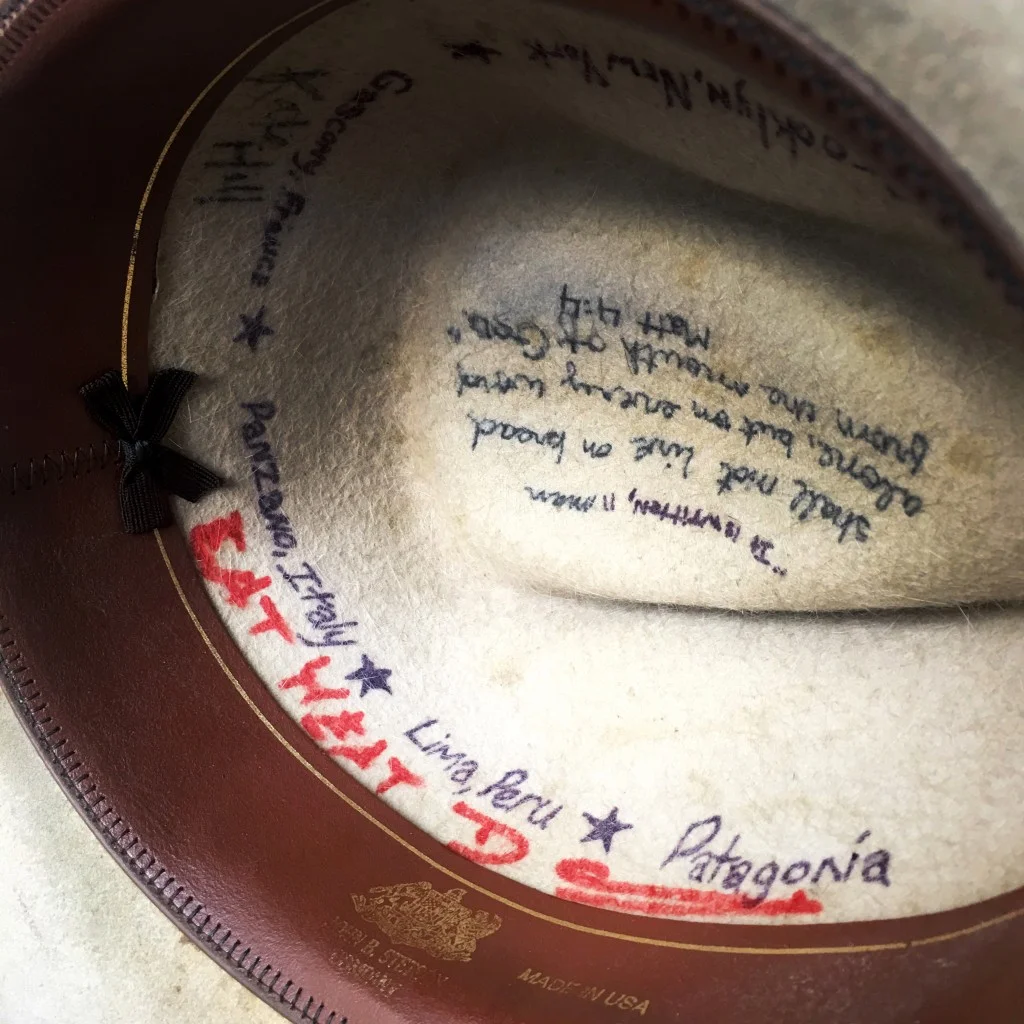 rooklyn, New York ★
Hill
Gascony, France ★ Panzano, Italy ★ Lima, Peru ★ Patagonía
EAT MEAT
"It is written, "man
shall not live on bread
alone, but on every word
from the mouth of God."
Matt 4:4
B. STETSON
COMPANY
MADE IN USA